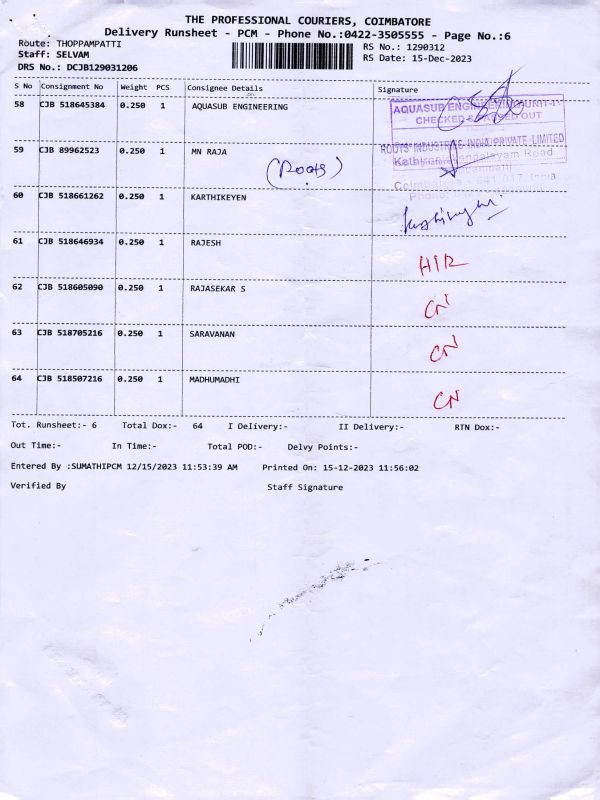 THE PROFESSIONAL COURIERS, COIMBATORE
Delivery Runsheet - PCM - Phone No.:0422-3505555 - Page No.:6
Route: THOPPAMPATTI
RS No.: 1290312
Staff: SELVAM
RS Date: 15-Dec-2023
DRS No.: DCJB129031206
S No Consignment No Weight PCS Consignee Details Signature
58 CJB 518645384 0.250 1 AQUASUB ENGINEERING
AQUASUB ENGINEERING UNIT-IV
CHECKED & PASSED OUT
59 CJB 89962523 0.250 1 MN RAJA
(Roots)
ROOTS INDUSTRIES INDIA PRIVATE LIMITED
Road
India
60 CJB 518661262 0.250 1 KARTHIKEYEN
61 CJB 518646934 0.250 1 RAJESH
HIR
62 CJB 518605090 0.250 1 RAJASEKAR S
CN
63 CJB 518705216 0.250 1 SARAVANAN
CN
64 CJB 518507216 0.250 1 MADHUMADHI
CN
Tot. Runsheet:- 6 Total Dox:- 64 I Delivery:- II Delivery:- RTN Dox:-
Out Time:- In Time:- Total POD:- Delvy Points:-
Entered By :SUMATHIPCM 12/15/2023 11:53:39 AM Printed On: 15-12-2023 11:56:02
Verified By Staff Signature